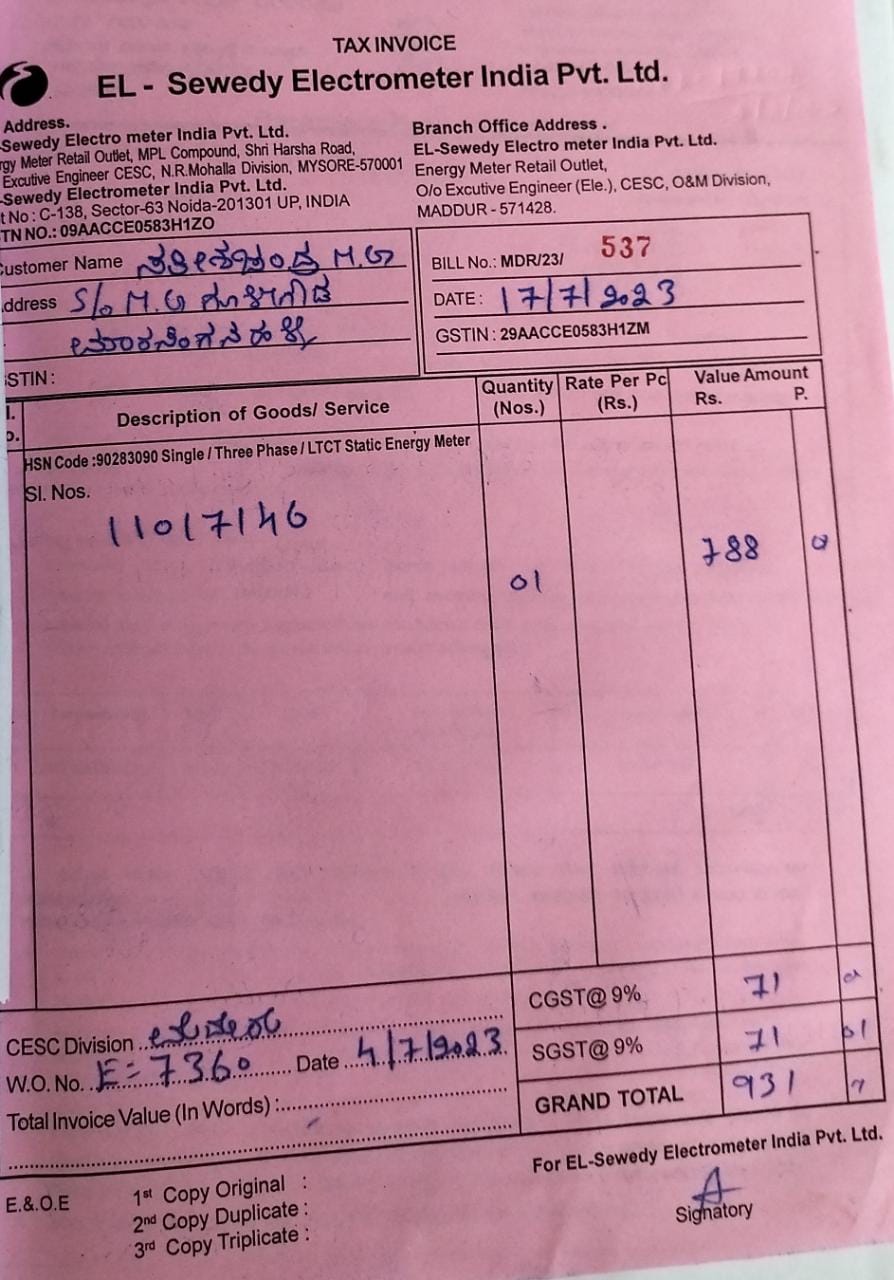 TAX INVOICE
EL - Sewedy Electrometer India Pvt. Ltd.
Address.
-Sewedy Electro meter India Pvt. Ltd.
rgy Meter Retail Outlet, MPL Compound, Shri Harsha Road,
Excutive Engineer CESC, N.R.Mohalla Division, MYSORE-570001
-Sewedy Electrometer India Pvt. Ltd.
t No : C-138, Sector-63 Noida-201301 UP, INDIA
TN NO.: 09AACCE0583H1ZO
Branch Office Address .
EL-Sewedy Electro meter India Pvt. Ltd.
Energy Meter Retail Outlet,
O/o Excutive Engineer (Ele.), CESC, O&M Division,
MADDUR - 571428.
ustomer Name M.G
ddress S/o M.G
STIN :
BILL No.: MDR/23/ 537
DATE : 17/7/2023
GSTIN : 29AACCE0583H1ZM
l. Description of Goods/ Service Quantity (Nos.) Rate Per Pc (Rs.) Value Amount Rs. P.
HSN Code :90283090 Single / Three Phase / LTCT Static Energy Meter
Sl. Nos.
11017146
01 788
CGST@ 9% 71
SGST@ 9% 71
GRAND TOTAL 931
CESC Division
W.O. No. E=7360 Date 4/7/2023
Total Invoice Value (In Words) :
For EL-Sewedy Electrometer India Pvt. Ltd.
Signatory
E.&.O.E
1st Copy Original :
2nd Copy Duplicate :
3rd Copy Triplicate :